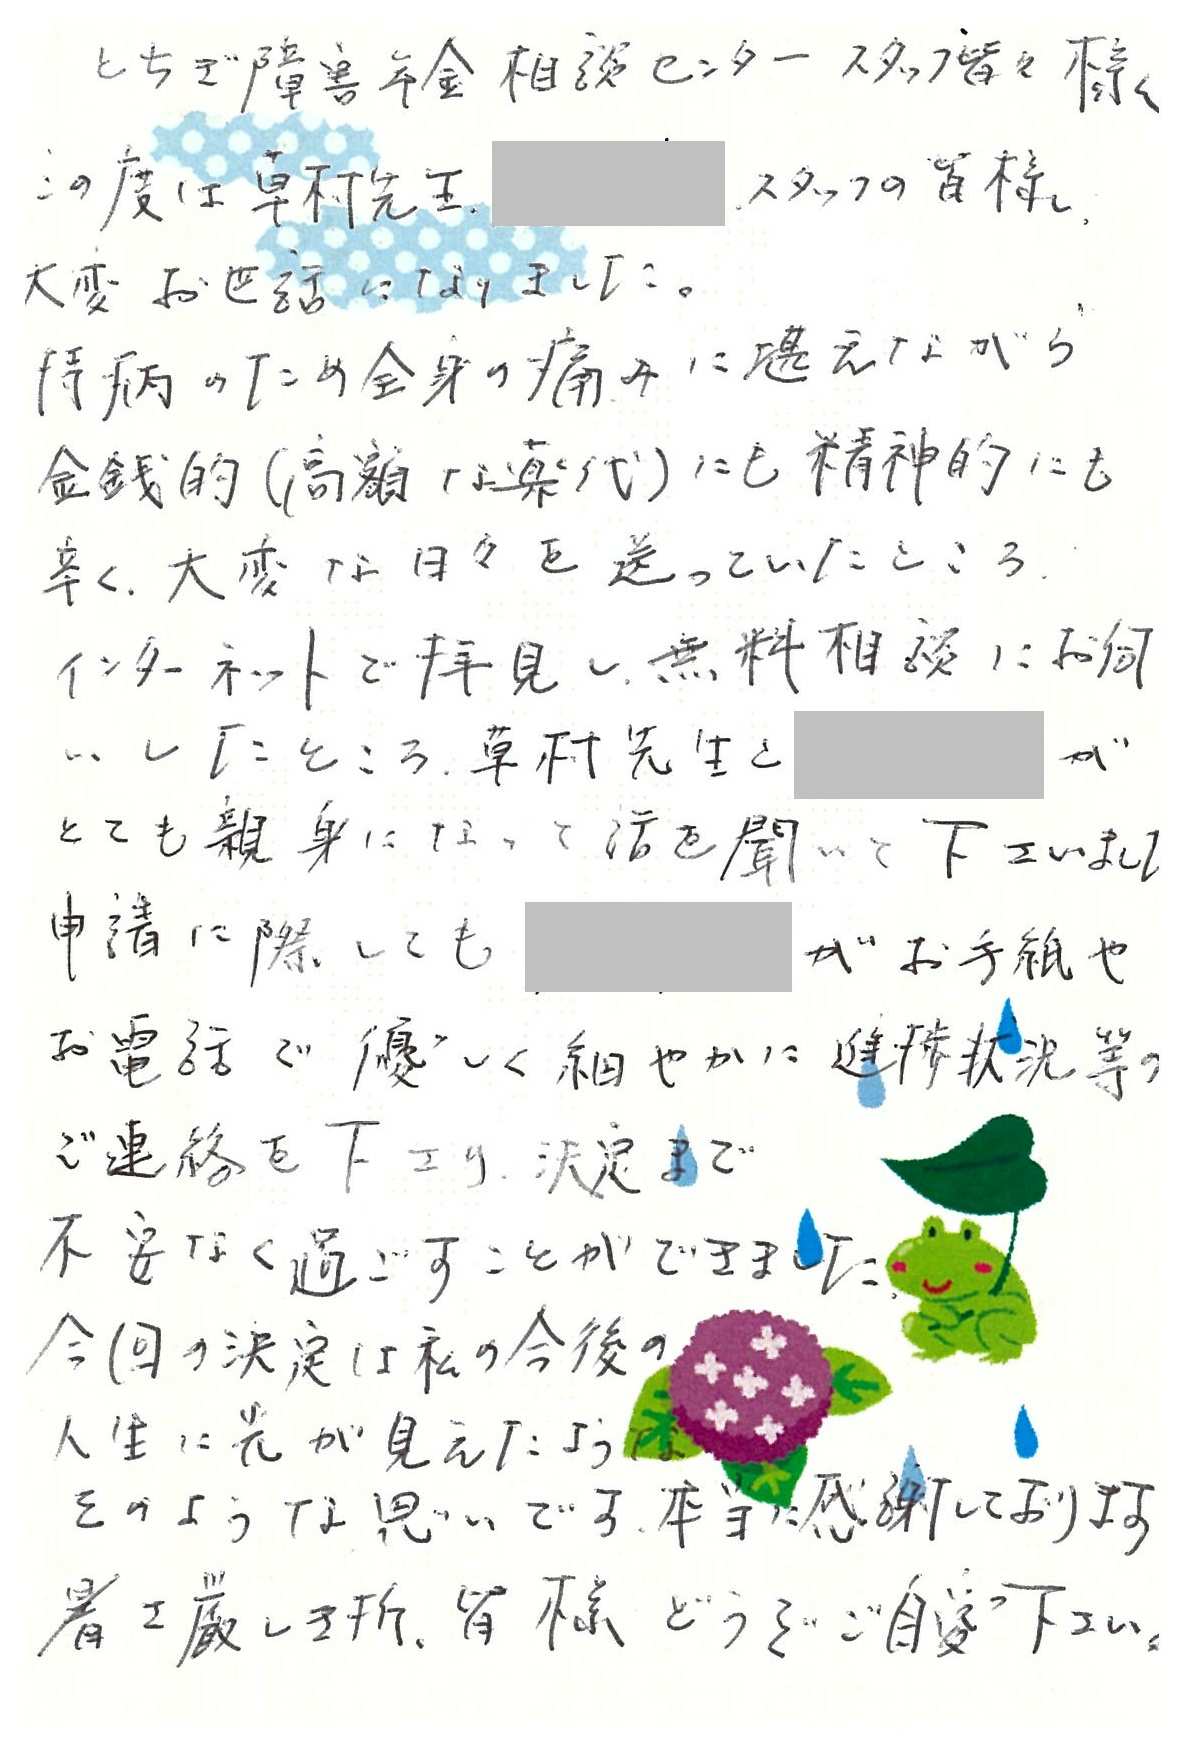 とちぎ障害年金相談センター スタッフ皆々様へ
この度は草村先生、スタッフの皆様に、
大変お世話になりました。
持病のため全身の痛みに堪えながら
金銭的(高額な薬代)にも精神的にも
辛く、大変な日々を送っていたところ、
インターネットで拝見し、無料相談にお伺
いしたところ、草村先生とが
とても親身になって話を聞いて下さいまして
申請に際してもがお手紙や
お電話で優しく細やかに進捗状況等の
ご連絡を下さり、決定まで
不安なく過ごすことができました。
今回の決定は私の今後の
人生に光が見えたような
そのような思いです。本当に感謝しております
暑さ厳しき折、皆様どうぞご自愛下さい。